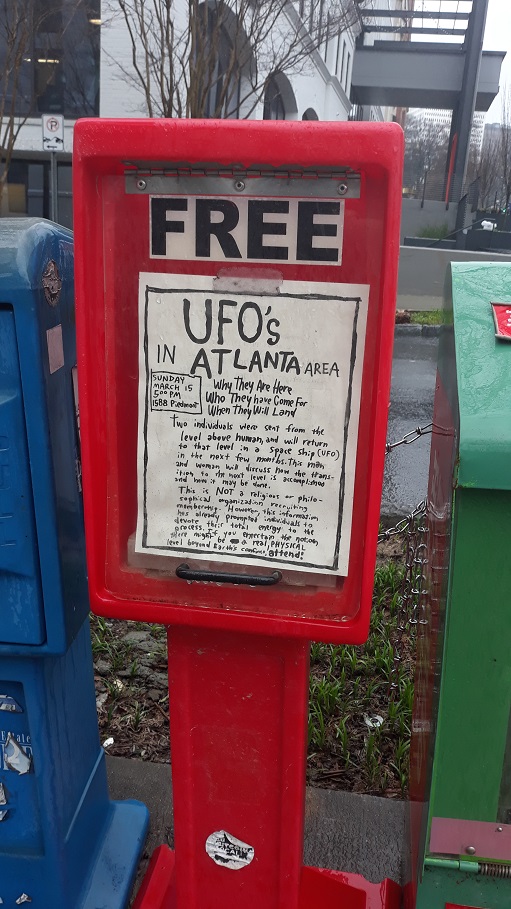 FREE
UFO's
IN ATLANTA AREA
SUNDAY
MARCH 15
5:00 PM
1588 Piedmont
Why They Are Here
Who They have Come For
When They Will Land
Two individuals were sent from the
level above human, and will return
to that level in a space ship (UFO)
in the next few months. This man
and woman will discuss how the trans-
ition to the next level is accomplished
and how it may be done.
This is NOT a religious or philo-
sophical organization recruiting
membership. However, this information
has already prompted individuals to
devote their total energy to the
process. If you entertain the notion,
there might be a real, PHYSICAL
level beyond Earth's confines, attend!